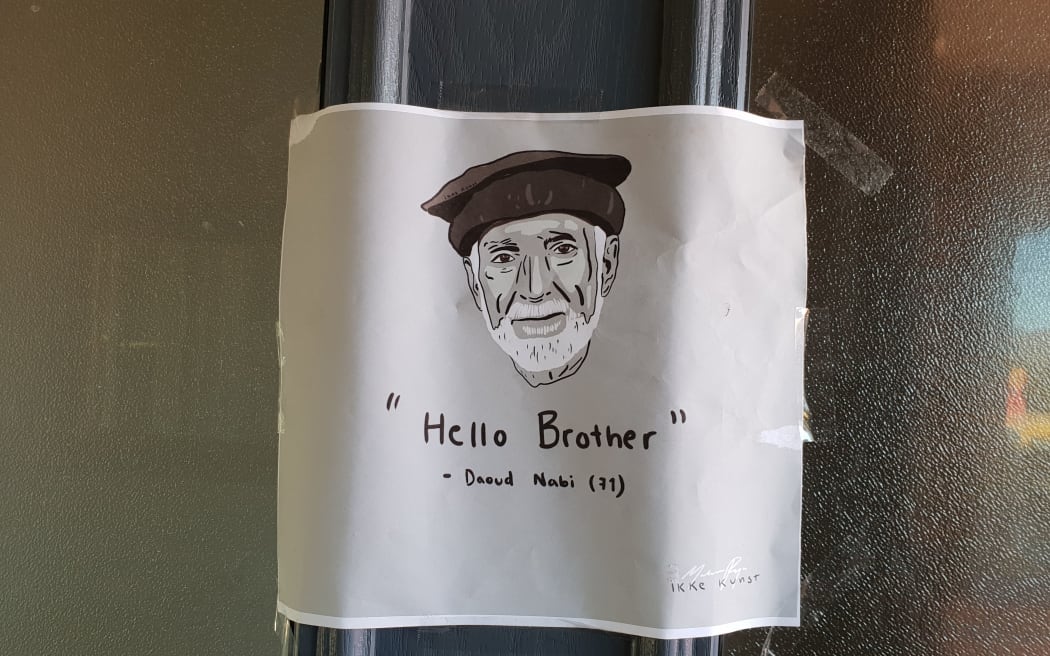 " Hello Brother "
- Daoud Nabi (71)
IKKe Kunst